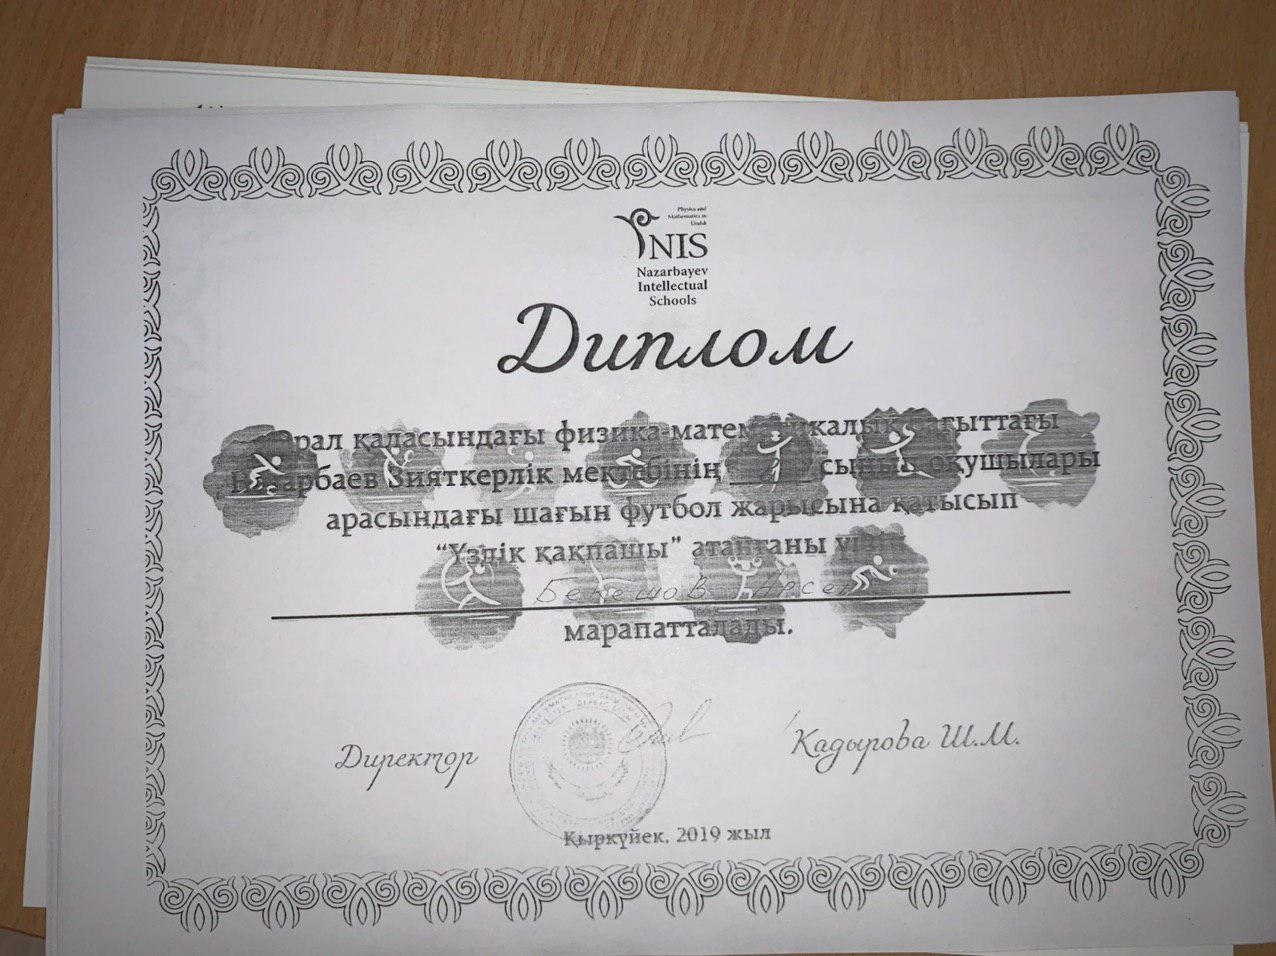 Physics and
Mathematics in
Uralsk
NIS
Nazarbayev
Intellectual
Schools
Диплом
Орал қаласындағы физика-математикалық бағыттағы
Назарбаев Зияткерлік мектебінің сынып оқушылары
арасындағы шағын футбол жарысына қатысып
“Үздік қақпашы” атанғаны үшін
Бекешов
марапатталады.
Директор
Кадырова Ш.М.
Қыркүйек, 2019 жыл